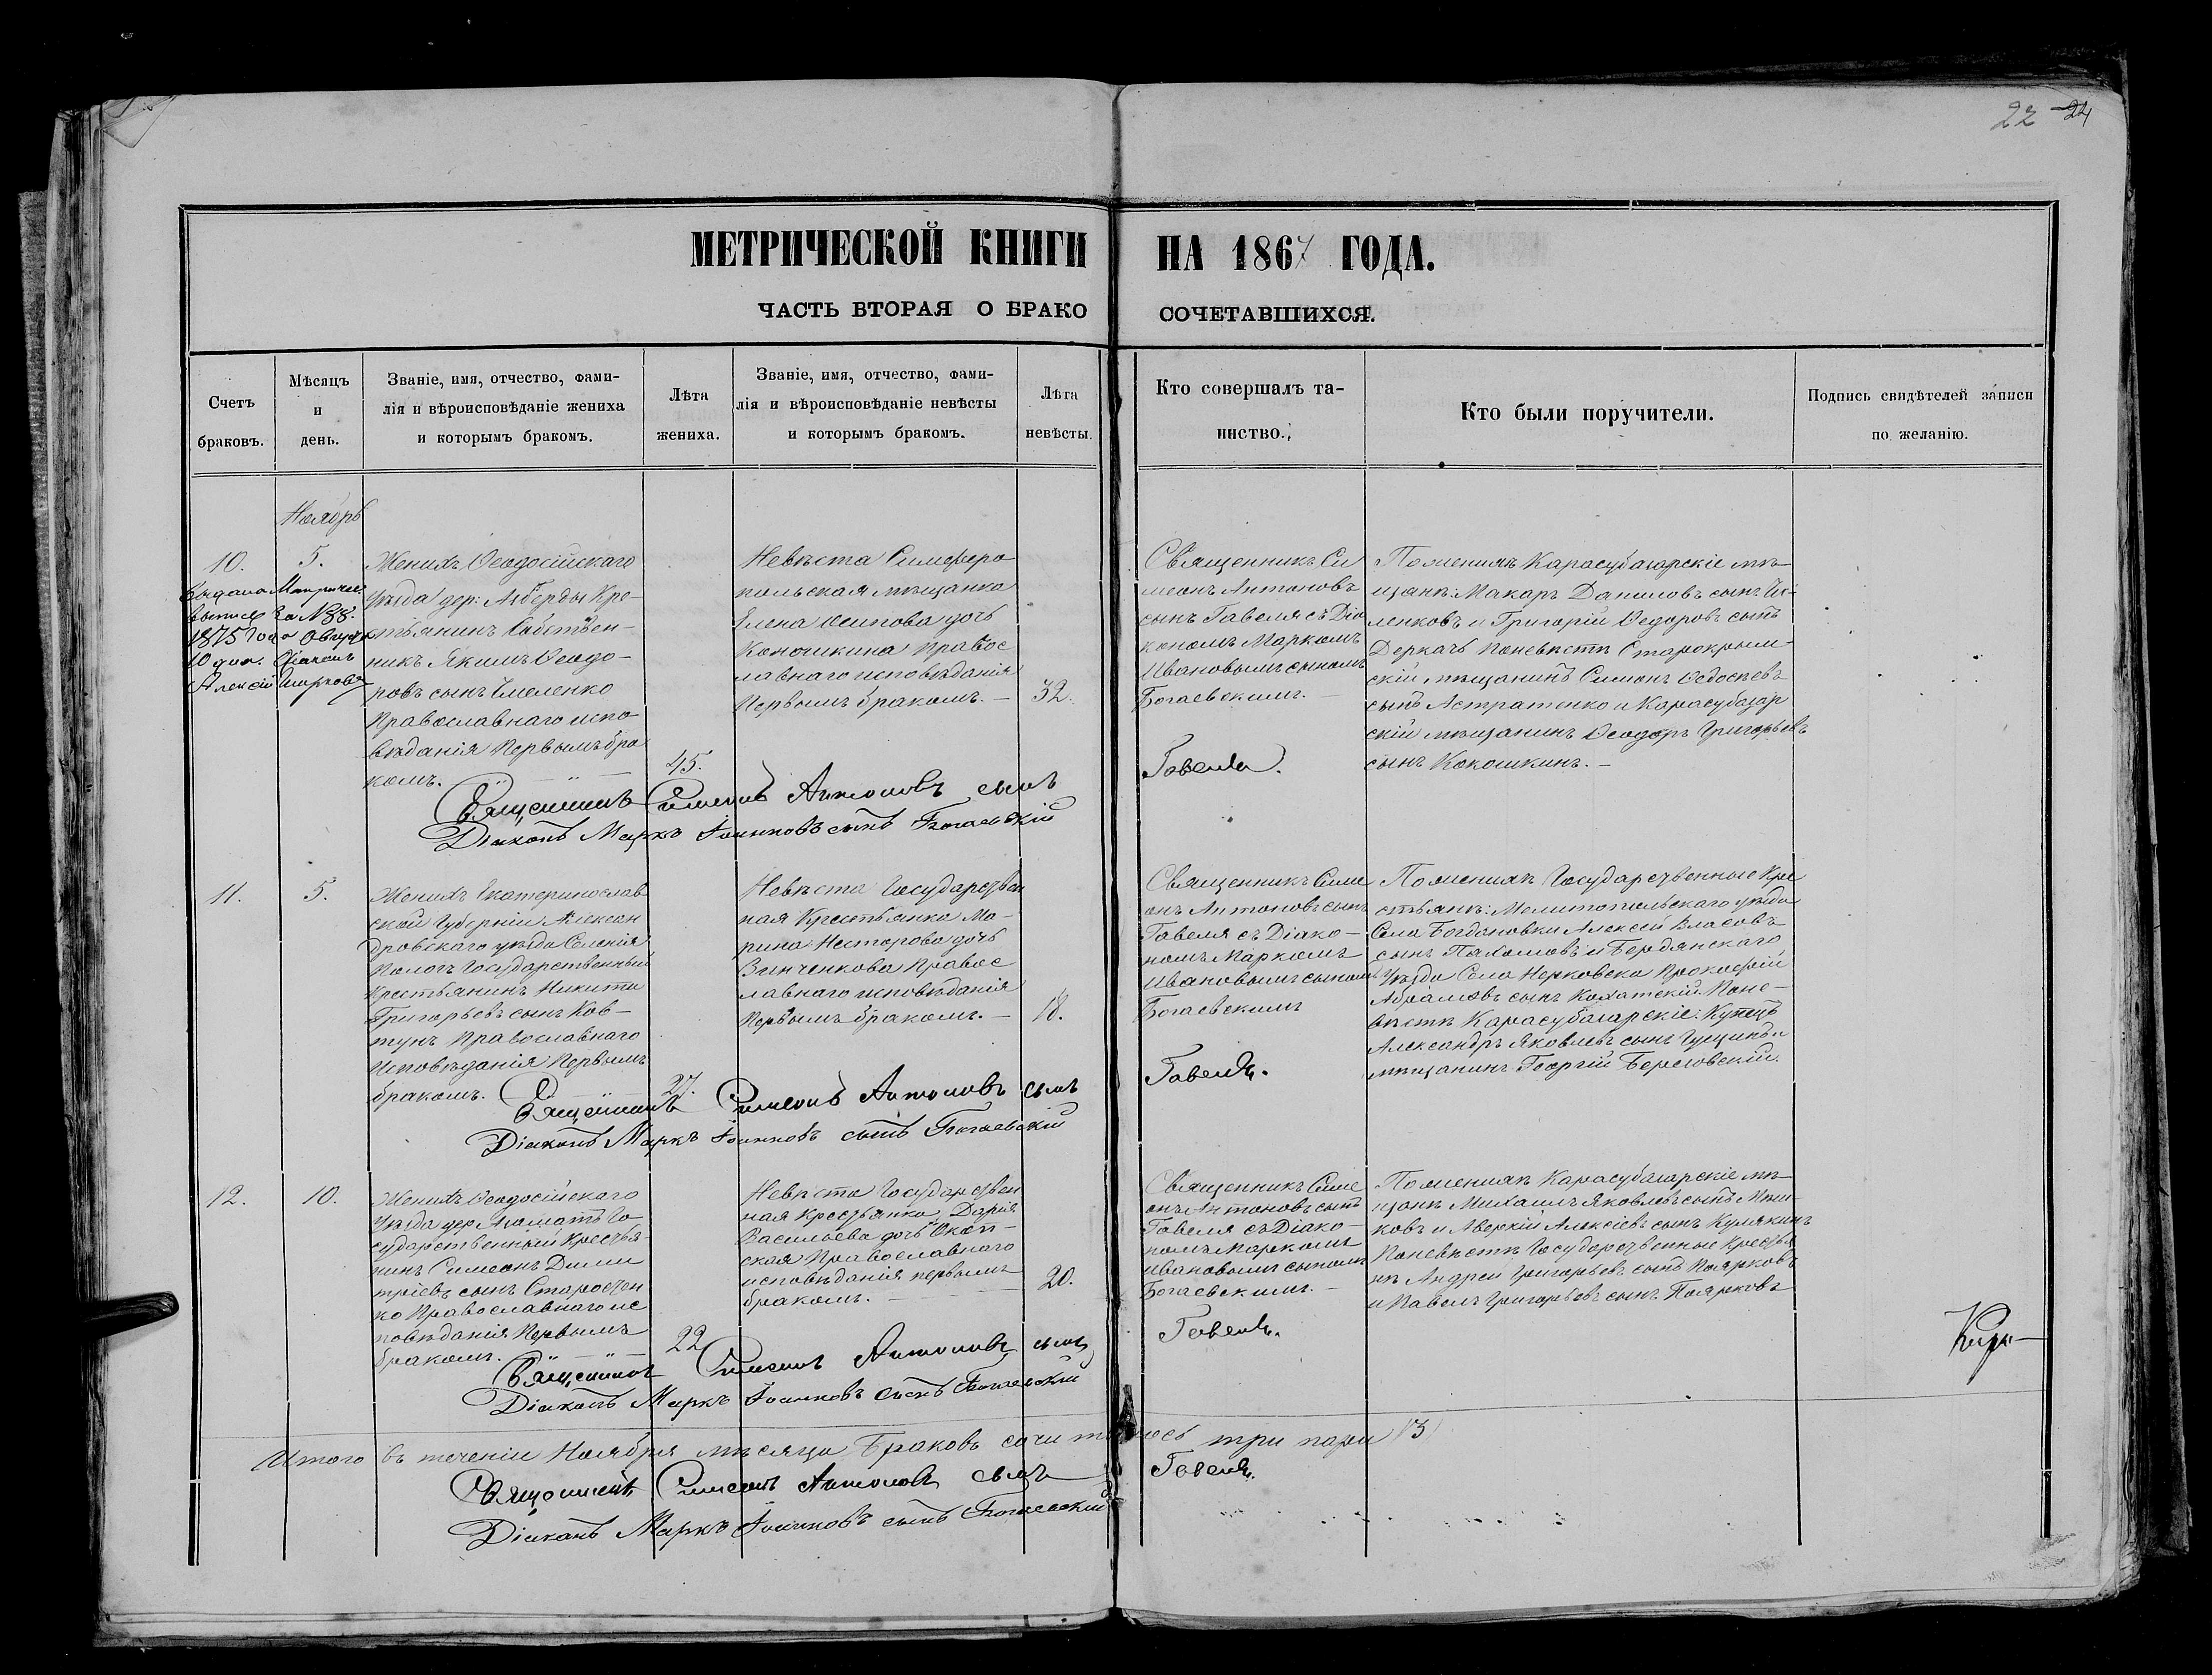 22 24
МЕТРИЧЕСКОЙ КНИГИ НА 1867 ГОДА.
ЧАСТЬ ВТОРАЯ О БРАКО СОЧЕТАВШИХСЯ.
Счетъ
браковъ.
Мѣсяцъ
и
день.
Званіе, имя, отчество, фами-
лія и вѣроисповѣданіе жениха
и которымъ бракомъ.
Лѣта
жениха.
Званіе, имя, отчество, фами-
лія и вѣроисповѣданіе невѣсты
и которымъ бракомъ.
Лѣта
невѣсты.
Кто совершалъ та-
инство.
Кто были поручители.
Подпись свидѣтелей записи
по желанію.
Ноябрь
10.
5.
Выдана Метричес.
выпись за № 38.
1875 года
10 дня. Діаконъ
Алексій
Женихъ Ѳеодосійскаго
уѣзда дер: Акберды Кре-
стьянинъ Собствен-
никъ Якимъ Ѳеодо-
ровъ сынъ Емеленко
Православнаго испо
вѣданія Первымъ бра
комъ.
45.
Невѣста Симферо
польская мѣщанка
Елена Осипова дочь
Кокошкина Правос
лавнаго исповѣданія
Первымъ бракомъ. —
32.
Священникъ Си
меонъ Антоновъ
сынъ Гавеля съ Діа
кономъ Маркомъ
Ивановымъ сыномъ
Богаевскимъ. —
По женихѣ Карасубазарскіе мѣ-
щане: Макаръ Даниловъ сынъ
ленковъ и Григорій Ѳедоровъ сынъ
Деркачъ По невѣстѣ Старокрым-
скій мѣщанинъ Симонъ Ѳедосѣевъ
сынъ Астратенко и Карасубазар
скій мѣщанинъ Ѳеодоръ Григорьевъ
сынъ Кокошкинъ. —
Священникъ Симеонъ Антоновъ сынъ Гавеля.
Діаконъ Маркъ Іоанновъ сынъ Богаевскій
11.
5.
Женихъ Екатеринослав
ской Губерніи Алексан
дровскаго уѣзда Селенія
Пологъ Государственный
Крестьянинъ Никита
Григорьевъ сынъ Ков-
тунъ Православнаго
Исповѣданія Первымъ
бракомъ.
27.
Невѣста Государствен
ная Крестьянка Ма-
рина Несторова дочь
Винченкова Правос
лавнаго исповѣданія
Первымъ бракомъ. —
18.
Священникъ Симе
онъ Антоновъ сынъ
Гавеля съ Діако-
номъ Маркомъ
Ивановымъ сыномъ
Богаевскимъ
По женихѣ Государственные Кре
стьяне: Мелитопольскаго уѣзда
Села Богдановки Алексей Власовъ
сынъ Пахомовъ и Бердянскаго
Уѣзда Села Прокофій
Абрамовъ сынъ По не-
вѣстѣ Карасубазарскіе: Купецъ
Александръ Яковлевъ сынъ и
мѣщанинъ Георгій Березовскій.
Священникъ Симеонъ Антоновъ сынъ Гавеля.
Діаконъ Маркъ Іоанновъ сынъ Богаевскій
12.
10.
Женихъ Ѳеодосійскаго
Уѣзда дер. Го
сударственный Крестья
нинъ Симеонъ Дими
тріевъ сынъ Старостен
ко Православнаго ис
повѣданія Первымъ
бракомъ.
22
Невѣста Государствен
ная Крестьянка Дарія
Васильева дочь
ская Православнаго
исповѣданія первымъ
бракомъ. —
20.
Священникъ Симе
онъ Антоновъ сынъ
Гавеля съ Діако-
номъ Маркомъ
Ивановымъ сыномъ
Богаевскимъ. —
По женихѣ Карасубазарскіе мѣ-
щане Михаилъ Яковлевъ сынъ
ковъ и Аверкій Алексіевъ сынъ Кулякинъ
По невѣстѣ Государственные Крестья
не Андрей Григорьевъ сынъ Поярковъ
и Павелъ Григорьевъ сынъ Поярковъ
Священникъ Симеонъ Антоновъ сынъ Гавеля.
Діаконъ Маркъ Іоанновъ сынъ Богаевскій
Итого въ теченіи Ноября мѣсяца Браковъ сочиталось три пари (3)
Священникъ Симеонъ Антоновъ сынъ Гавеля.
Діаконъ Маркъ Іоанновъ сынъ Богаевскій